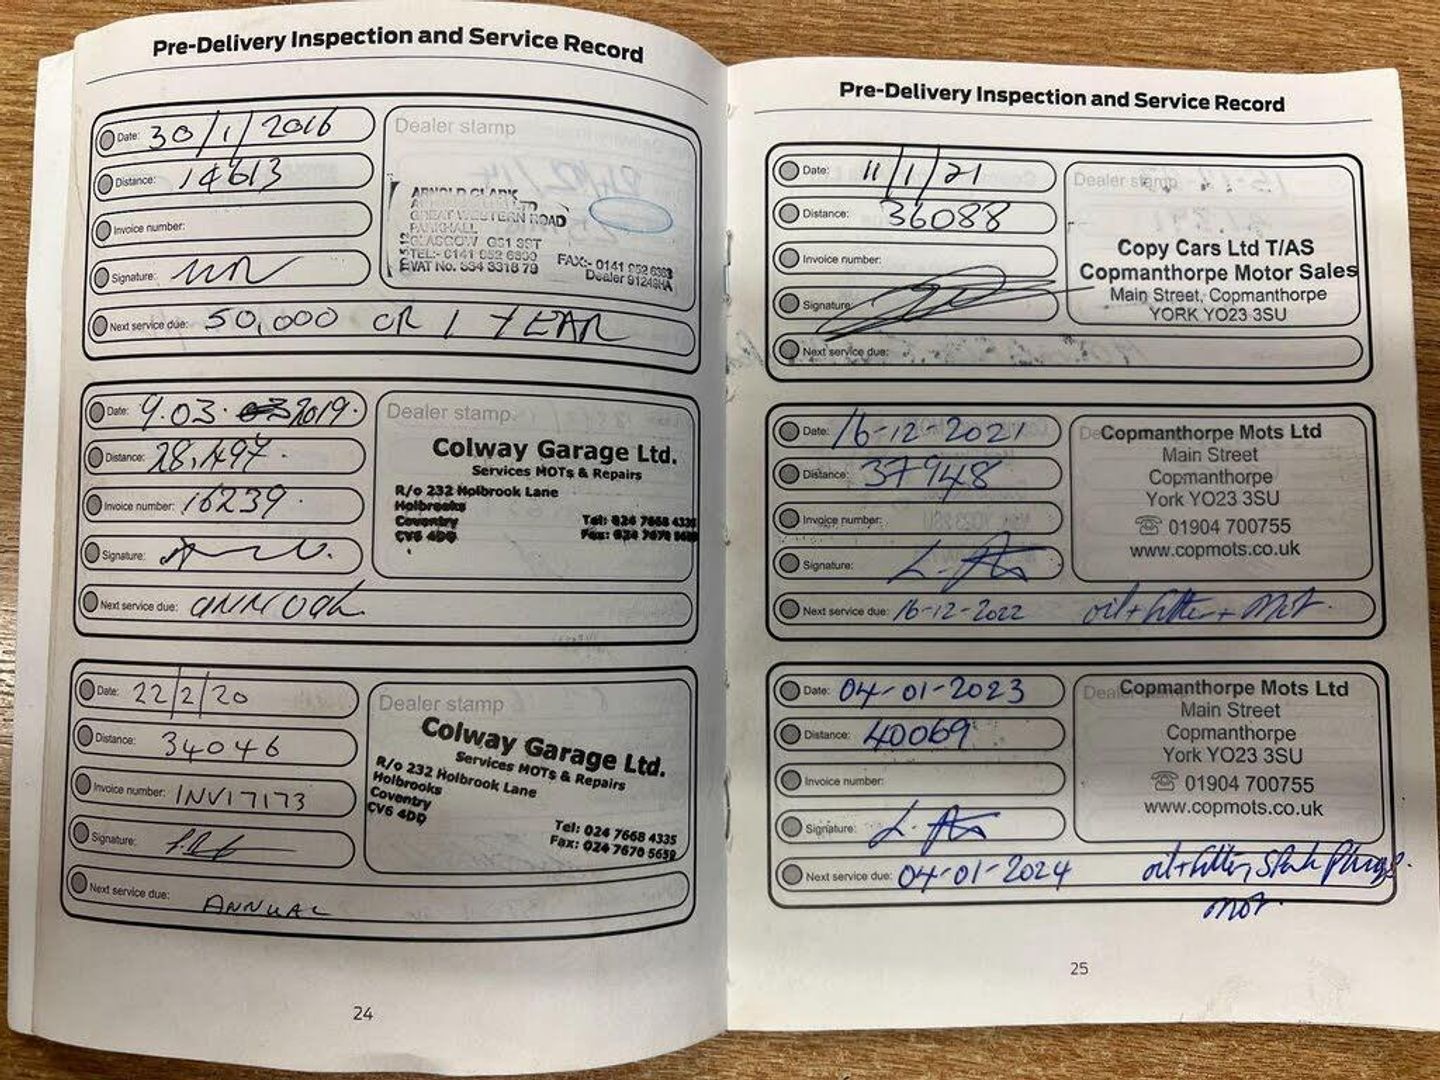 Pre-Delivery Inspection and Service Record
Date: 30/1/2016
Distance: 14613
Invoice number:
Signature:
Next service due: 50,000 OR 1 YEAR
Dealer stamp
ARNOLD CLARK
GREAT WESTERN ROAD
GLASGOW
FAX:- 0141 952 6363
VAT No.
Dealer
Date: 9.03. 2019.
Distance: 28,497.
Invoice number: 16239.
Signature:
Next service due: annual
Dealer stamp
Colway Garage Ltd.
Services MOTs & Repairs
R/o 232 Holbrook Lane
Holbrooks
Coventry
CV6 4DQ
Tel: 024 7668 4335
Fax: 024 7670 5659
Date: 22/2/20
Distance: 34046
Invoice number: INV17173
Signature:
Next service due: ANNUAL
Dealer stamp
Colway Garage Ltd.
Services MOTs & Repairs
R/o 232 Holbrook Lane
Holbrooks
Coventry
CV6 4DQ
Tel: 024 7668 4335
Fax: 024 7670 5659
24
Pre-Delivery Inspection and Service Record
Date: 11/1/21
Distance: 36088
Invoice number:
Signature:
Next service due:
Dealer stamp
Copy Cars Ltd T/AS
Copmanthorpe Motor Sales
Main Street, Copmanthorpe
YORK YO23 3SU
Date: 16-12-2021
Distance: 37948
Invoice number:
Signature:
Next service due: 16-12-2022 oil + filter + Mot.
Copmanthorpe Mots Ltd
Main Street
Copmanthorpe
York YO23 3SU
☏ 01904 700755
www.copmots.co.uk
Date: 04-01-2023
Distance: 40069
Invoice number:
Signature:
Next service due: 04-01-2024 oil + filter, spark plugs.
mot.
Copmanthorpe Mots Ltd
Main Street
Copmanthorpe
York YO23 3SU
☏ 01904 700755
www.copmots.co.uk
25